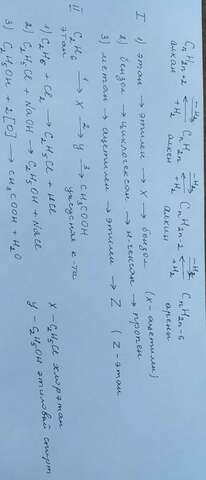 CnH2n+2 ⇄ CnH2n ⇄ CnH2n-2 ⇄ CnH2n-6
-H2 +H2 -H2 +H2 -H2 +H2
алкан алкен алкин арены
I 1) этан → этилен → X → бензол (x-ацетилен)
2) бензол → циклогексан → н-гексан → пропен
3) метан → ацетилен → этилен → Z (Z-этан
II C2H6 1→ X 2→ Y 3→ CH3COOH
этан уксусная к-та
1) C2H6 + Cl2 → C2H5Cl + HCl X - C2H5Cl хлорэтан
2) C2H5Cl + NaOH → C2H5OH + NaCl Y - C2H5OH этиловый спирт
3) C2H5OH + 2[O] → CH3COOH + H2O